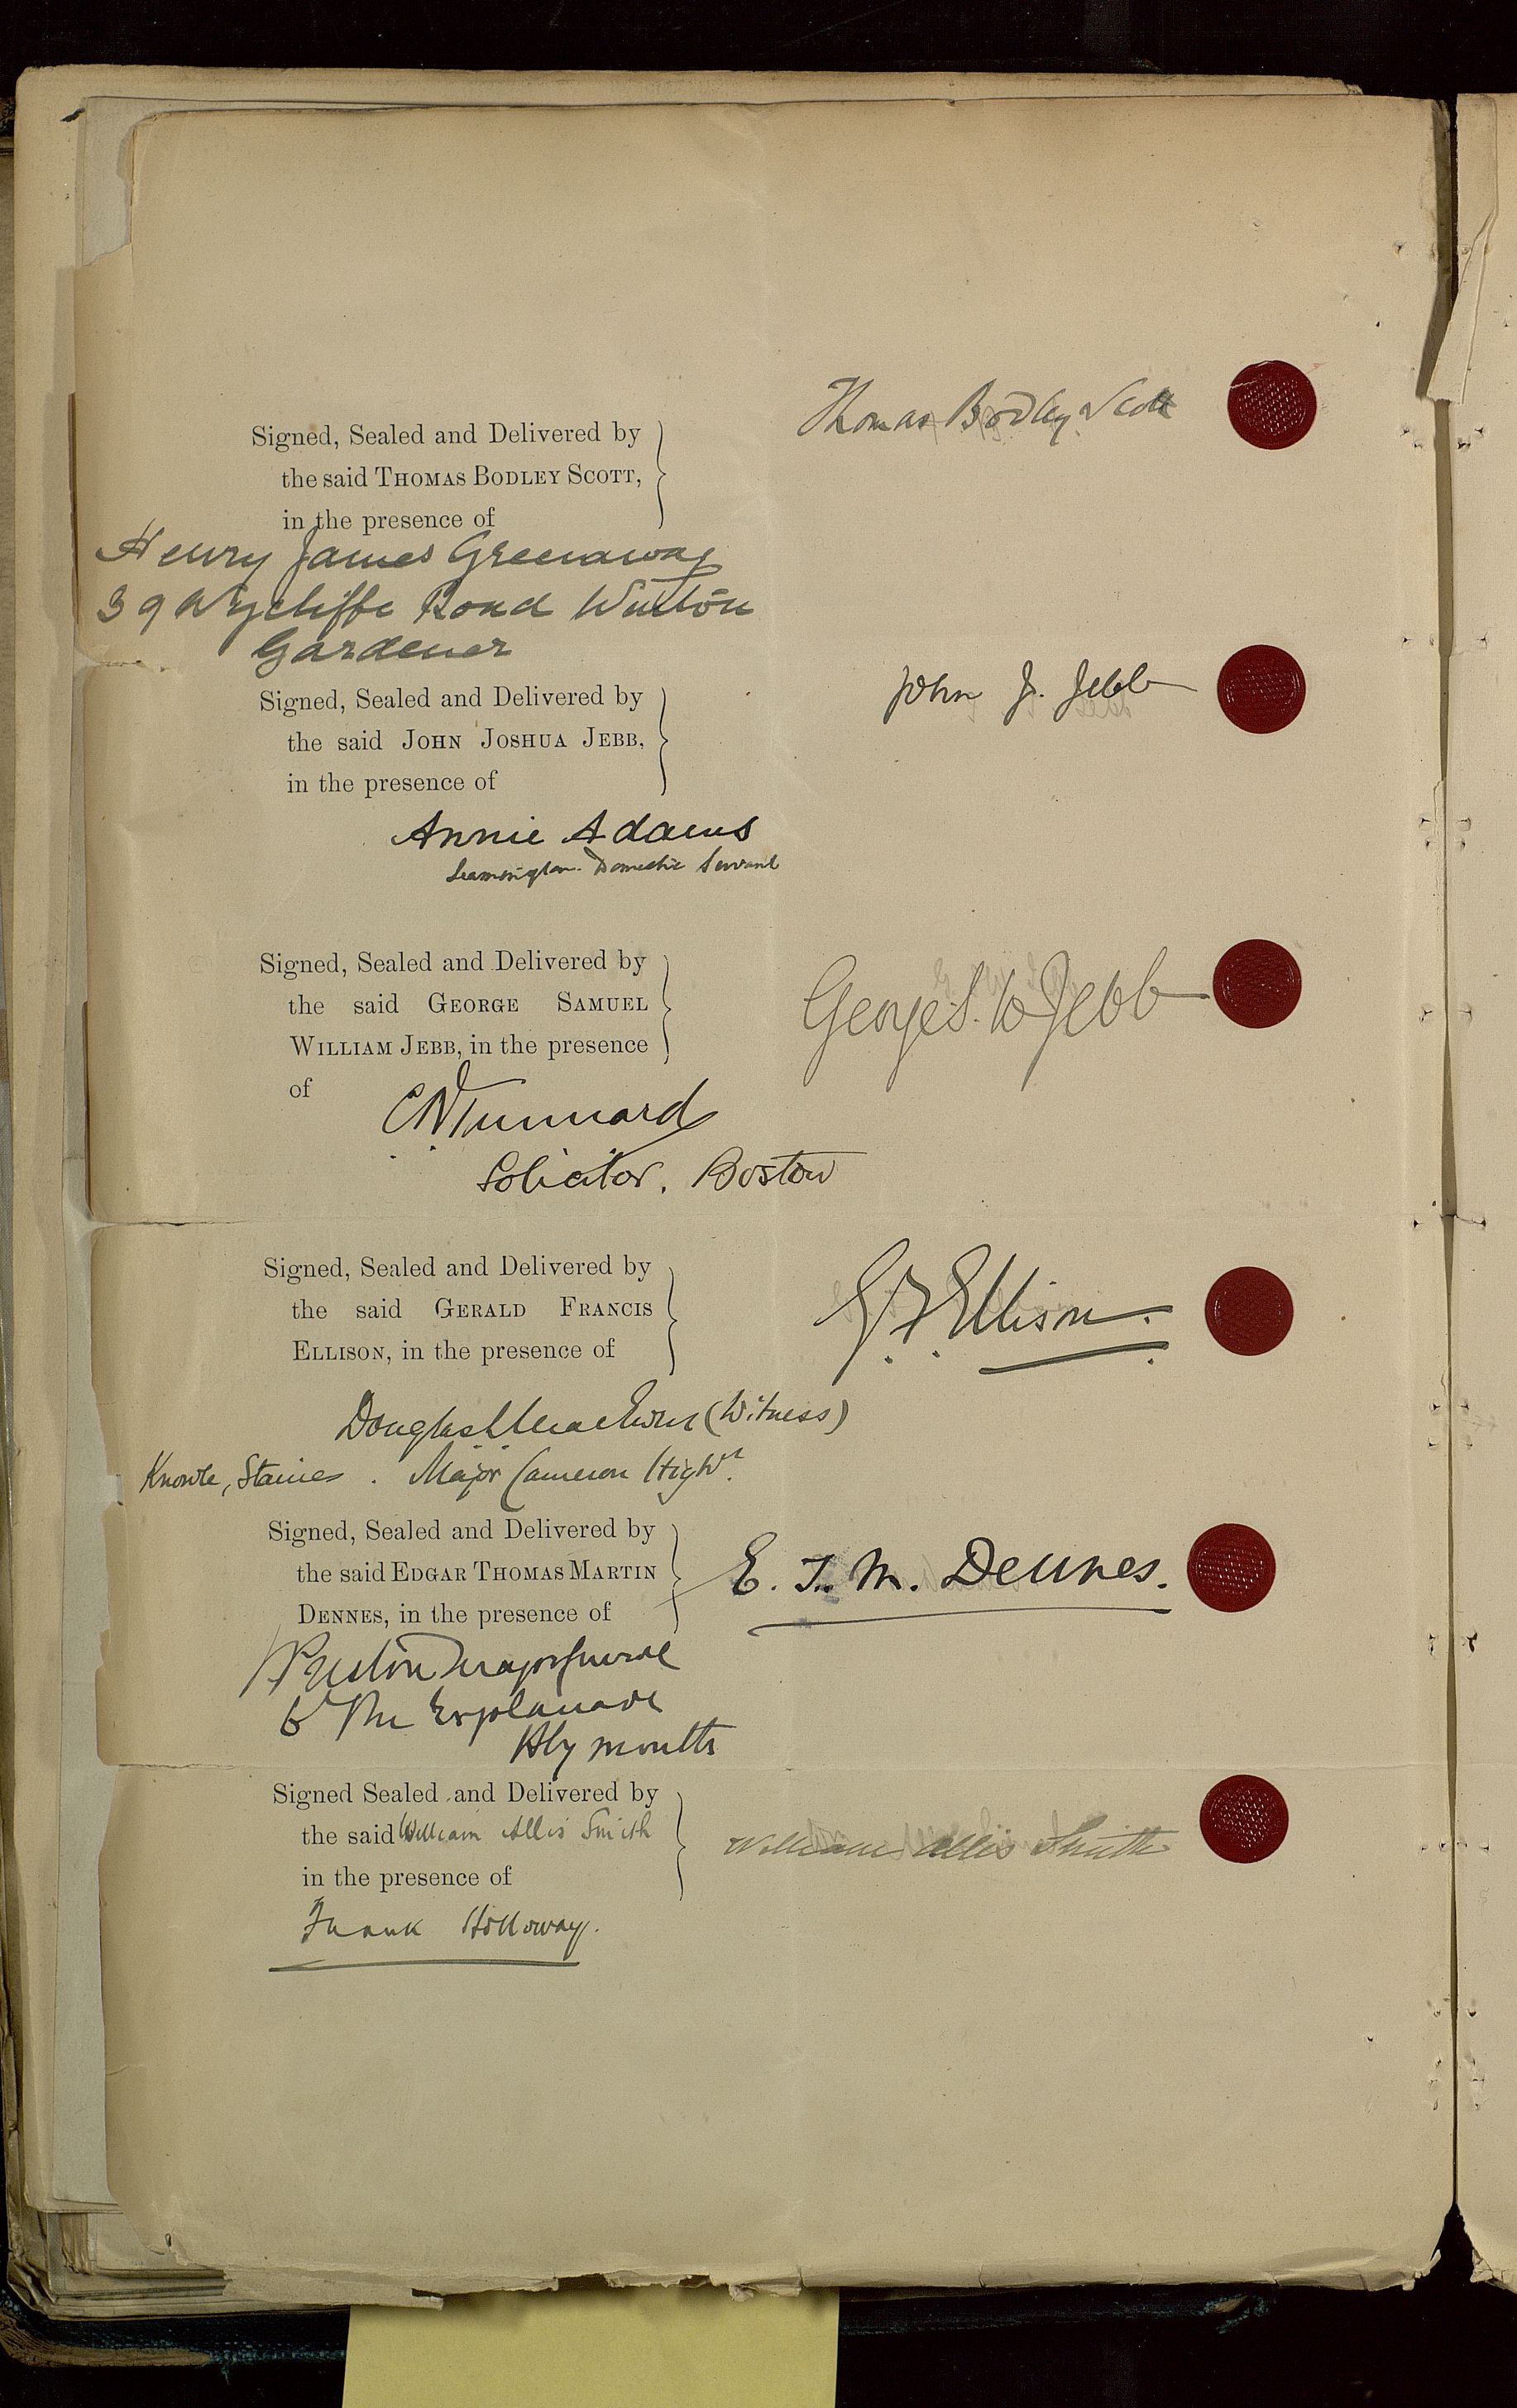 Thomas Bodley Scott
Signed, Sealed and Delivered by
the said THOMAS BODLEY SCOTT,
in the presence of
Henry James Greenaway
39 Wycliffe Road Winton
Gardener
John J. Jebb
Signed, Sealed and Delivered by
the said JOHN JOSHUA JEBB,
in the presence of
Annie Adams
Leamington. Domestic Servant
Signed, Sealed and Delivered by
the said GEORGE SAMUEL
WILLIAM JEBB, in the presence
of
George S. W Jebb
Tunnard
Solicitor. Boston
Signed, Sealed and Delivered by
the said GERALD FRANCIS
ELLISON, in the presence of
G F Ellison.
Douglas (Witness)
Knowle, Staines. Major Cameron Highrs.
Signed, Sealed and Delivered by
the said EDGAR THOMAS MARTIN
DENNES, in the presence of
E. T. M. Dennes.
Preston Major General
6 The Esplanade
Plymouth
Signed Sealed and Delivered by
the said William Allis Smith
in the presence of
William Allis Smith
Frank Holloway.